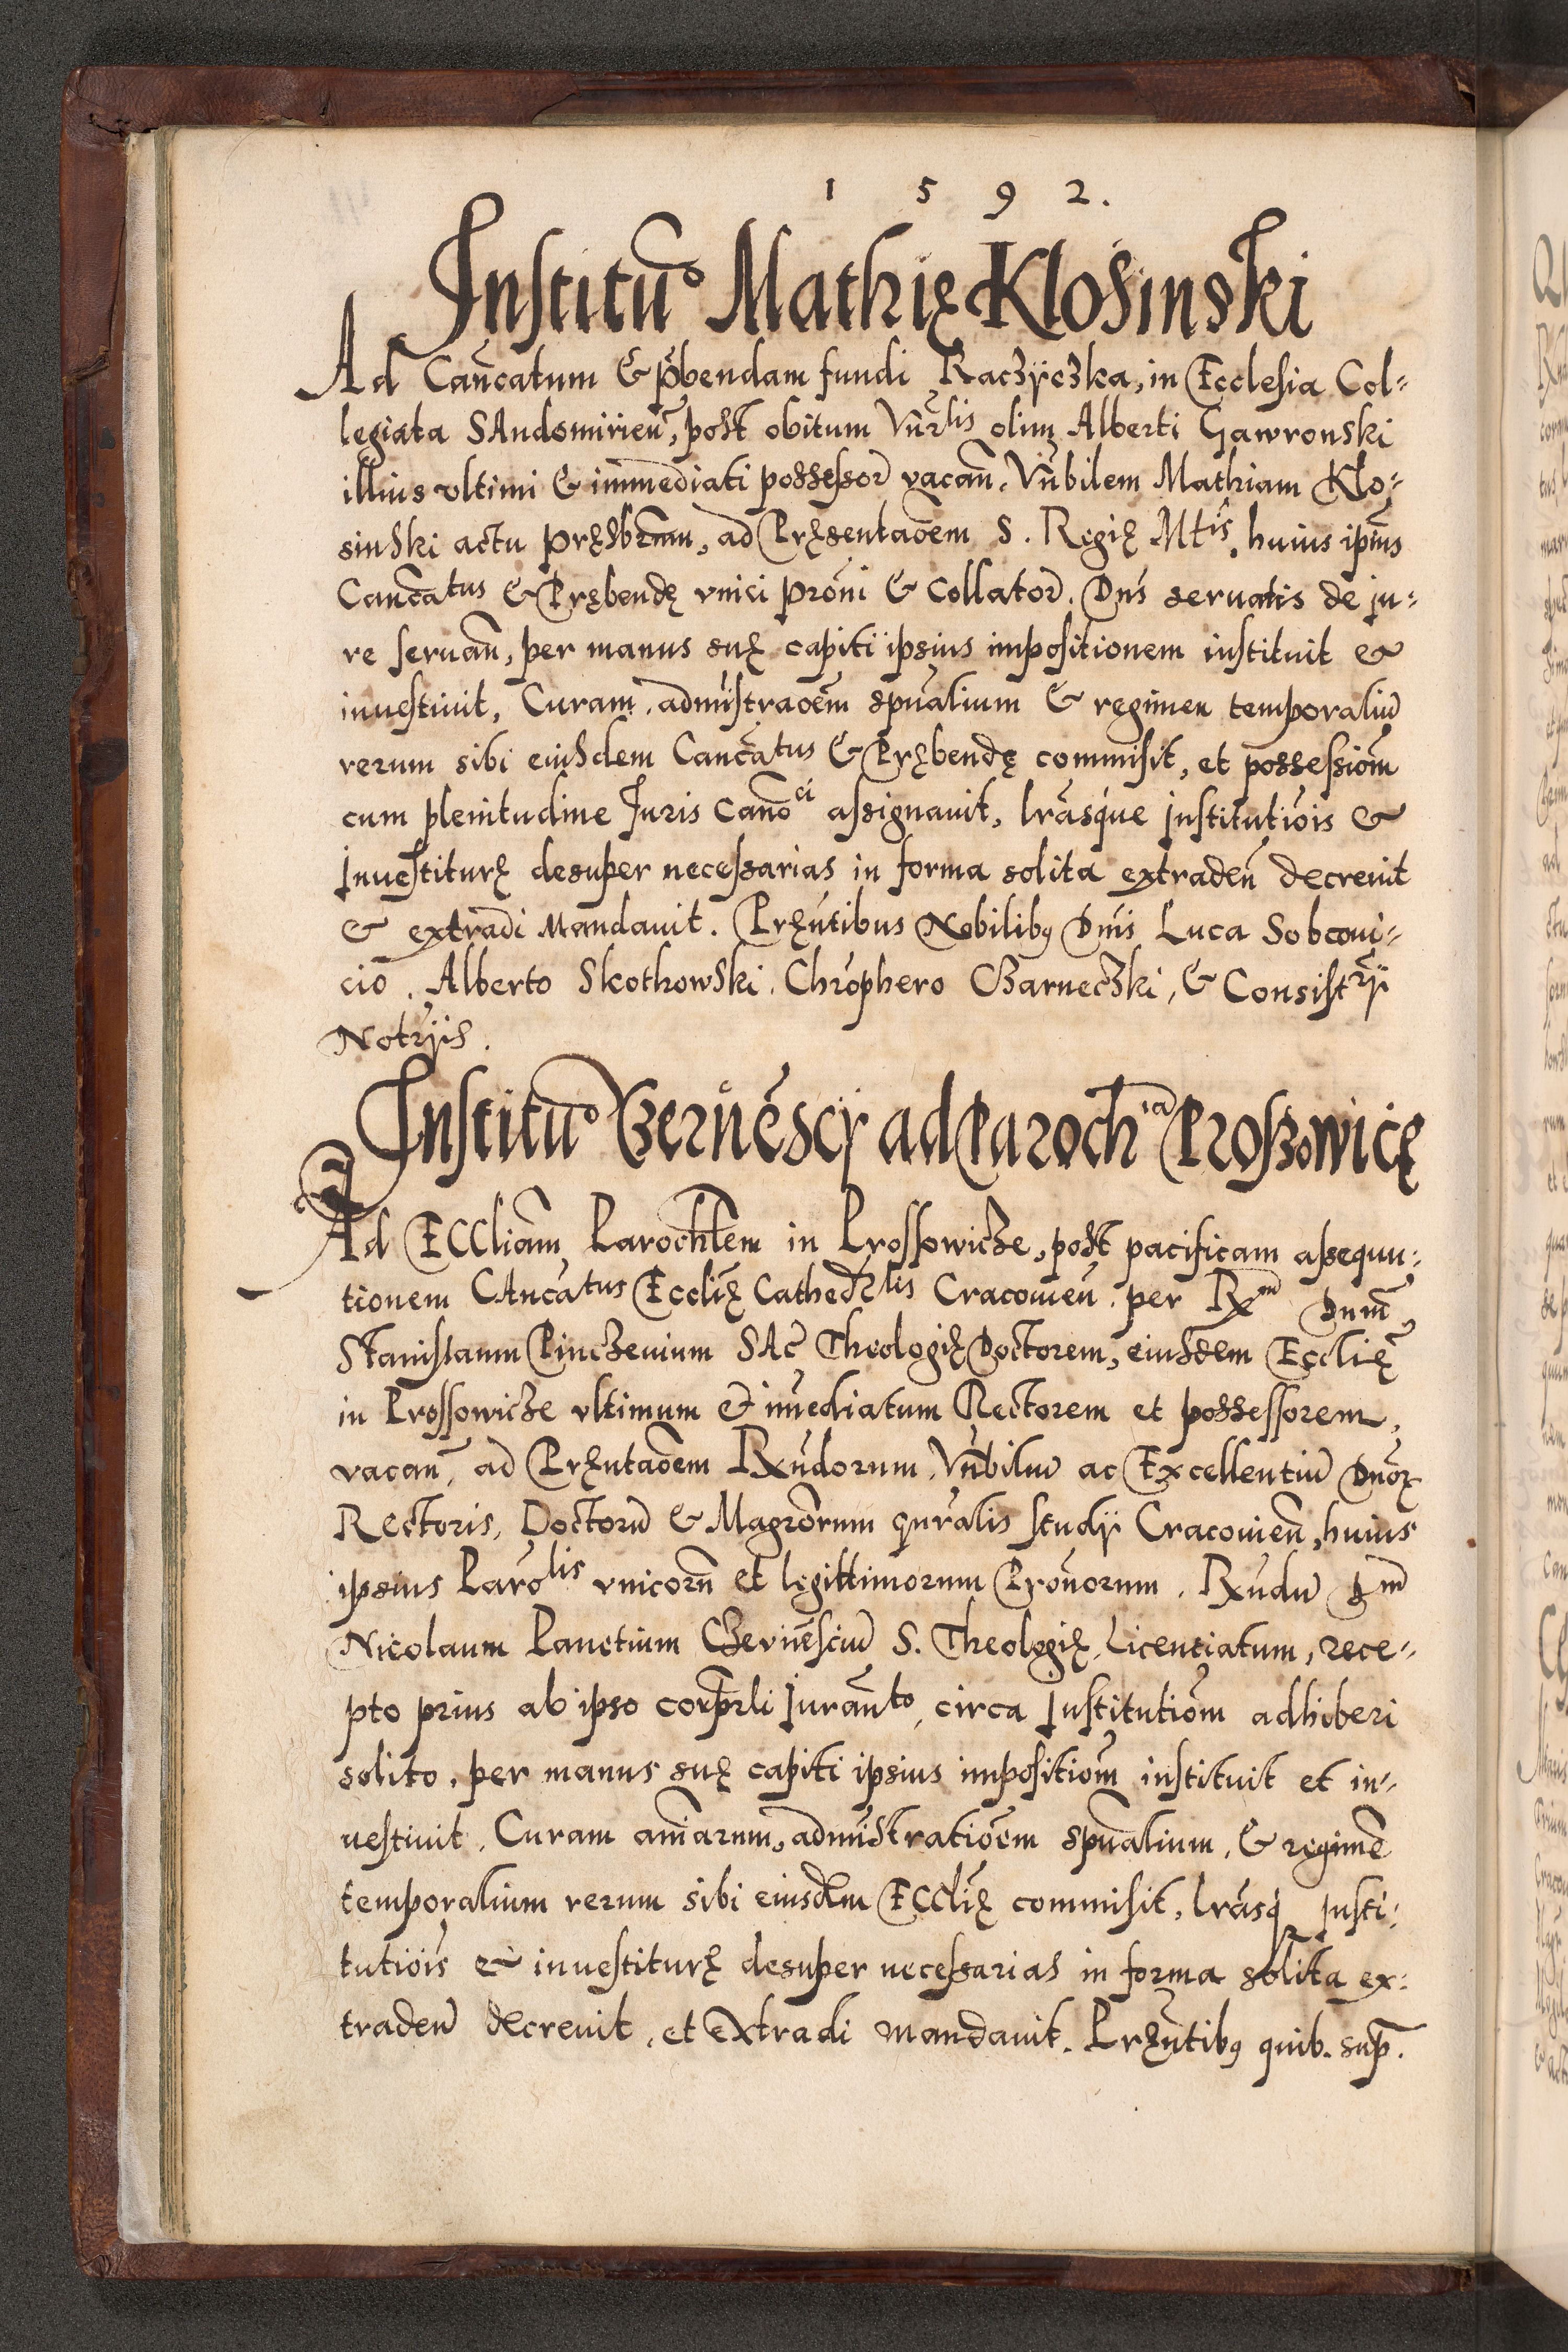 1592.
Institũo Mathię Klosinski
Ad Cañcatum & p̃bendam fundi Raczÿczka, in Ecclesia Col⸗
legiata SAndomirieñ, post obitum Vñrlis olim Alberti Gawronski
illius vltimi & immediati possessor̃ vacañ, Vñbilem Mathiam Klo⸗
sinski actu pręsbrm̃, ad Pręsentaõem S. Regię Mtis, huius ip̃ius
Cañcatus & Prębendę vnici pro͠ni & Collator̃. Dñs seruatis de ju⸗
re seruañ, per manus suę capiti ipsius impositionem instituit &
inuestiuit, Curam, adm̃istraoẽm sp̃ualium & regimen temporaliũ
rerum sibi eiusdem Cañcatus & Prębendę commisit, et possessiõm
cum plenitudine Juris Canõci assignauit, lr̃asque institutiõis &
Inuestiturę desuper necessarias in forma solita extradeñ decreuit
& extradi Mandauit. Pręñtibus Nobilibꝫ Dñis Luca Sobcoui⸗
ciõ. Alberto Skothowski. Chrõphero Czarneczki, & Consistrij
Notrijs.
Institũo Czerũẽscÿ ad Parochia Proszowicę
Ad ECCliam̃ Parochłem in Prossowicze, post pacificam assequu⸗
tionem CAnc̃atus Ecclię Cathedrlis Cracouieñ. per Rxm Dnum̃
Stanislaum Pinczeuium SAc̃ Theologię Doctorem, eiusdem Ecclię
in Prossowicze vltimum & im̃ediatum Rectorem et possessorem,
vacañ, ad Pręntaõem Rxñdorum, Vñbiliũ ac Excellentiũ Dñoꝝ
Rectoris, Doctorũ & Magrõrum gnr̃alis studij Cracouieñ, huius
ipsius Parõlis vnicorũ et legittimorum Prõnorum. Rxñdũ Dm̃
Nicolaum Panetium Czeruẽsciũ S. Theologię Licentiatum, rece⸗
pto prius ab ipso corp̃rli Jurañto, circa Institutiõm adhiberi
solito, per manus suę capiti ipsius impositiõm instituit et in⸗
uestiuit. Curam am̃iarum, adm̃istratiõem sp̃ualium, & regimẽ
temporalium rerum sibi eiusdm̃ ECClię commisit, lr̃asq; Insti⸗
tutiõis & inuestiturę desuper necessarias in forma solita ex⸗
tradeñ decreuit, et extradi mandauit. Pręñtibꝫ quib. sup̃.